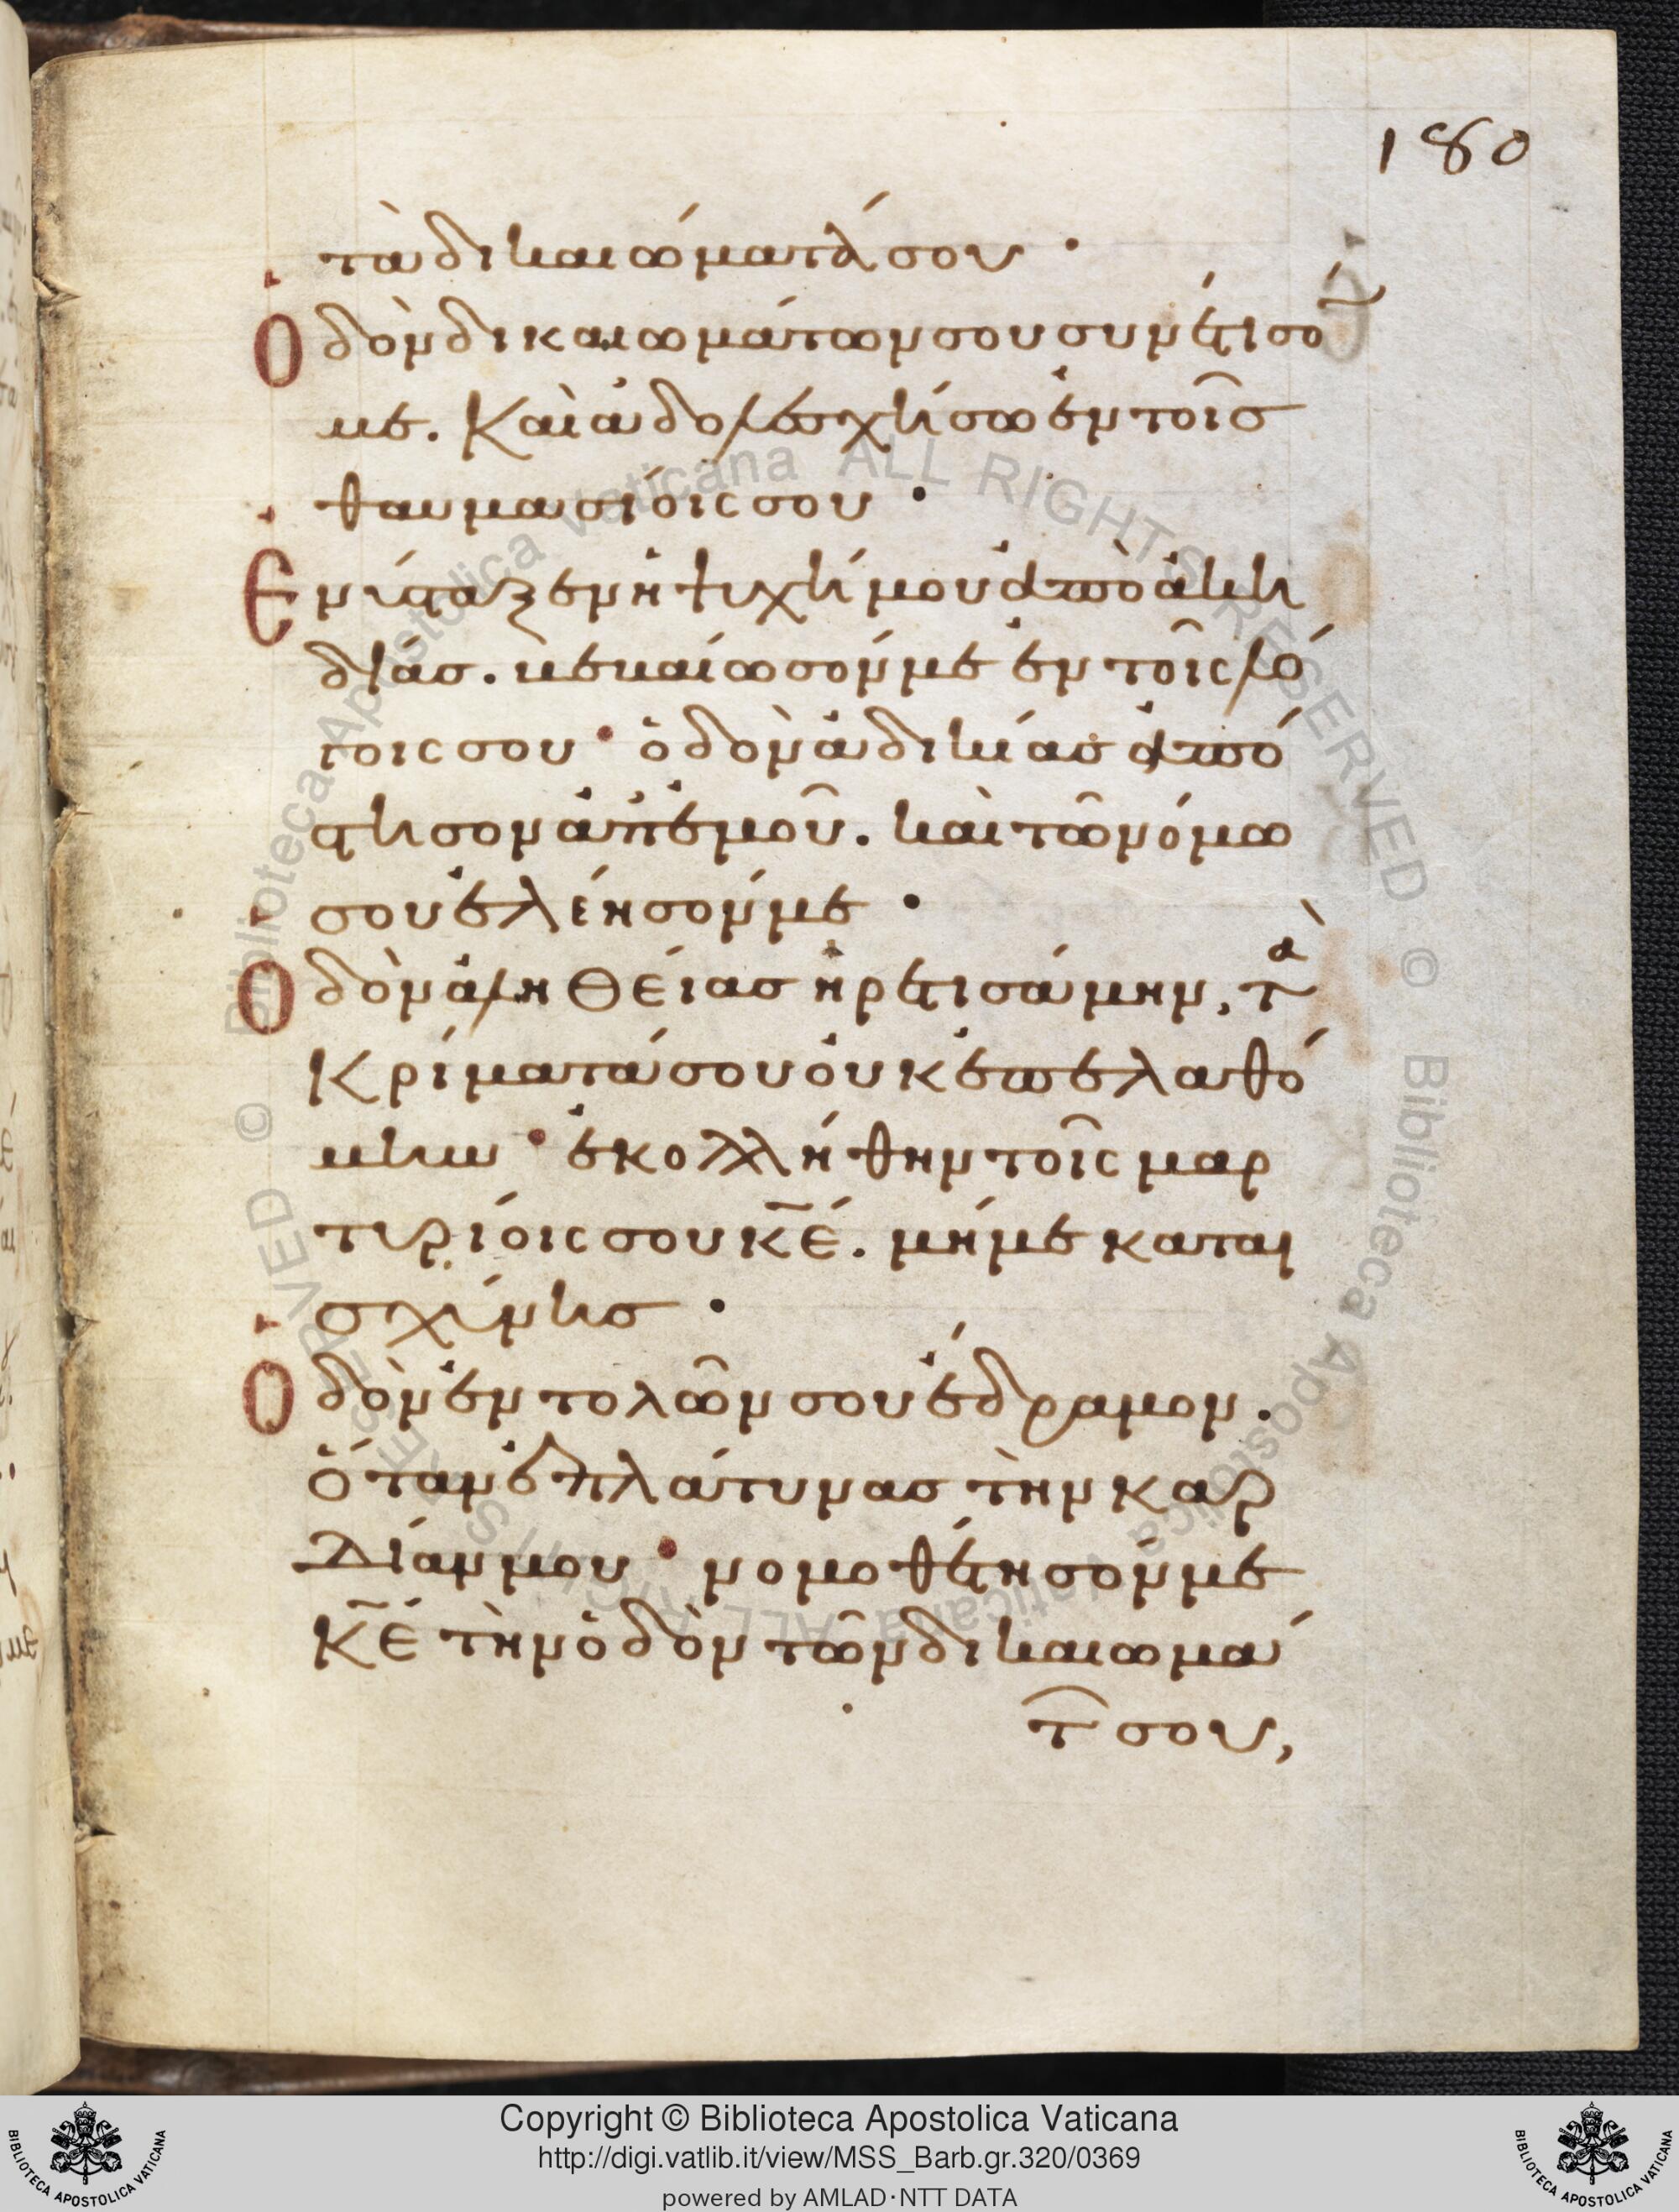 180
τὰ δικαιώματά σου ·
Ὁδὸν δικαιωμάτων σου συνέτισό
με. Καὶ ἀδολεσχήσω ἐν τοῖς
θαυμασίοις σου ·
Ενύσταξεν η ψυχή μου ἀπὸ ἀκη
δίας. βεβαίωσόν με ἐν τοῖς λό
γοις σου · ὁδὸν ἀδικίας ἀπό
στησον ἀπ' ἐμοῦ. καὶ τῶ νόμω
σου ἐλέησόν με ·
Οδὸν ἀληθείας ἡρετισάμην, τὰ
Κρίματά σου ουκ ἐπελαθό
μην · ἐκολλήθην τοῖς μαρ
τυρίοις σου κ̅ε̅. μή με καται
σχύνης ·
Οδὸν ἐντολῶν σου ἔδραμον.
ὅταν ἐπλάτυνας τὴν καρ
Δίαν μου · νομοθέτησόν με
κ̅ε̅ τὴν ὁδὸν τῶν δικαιωμά
τ̑ σου,
Copyright © Biblioteca Apostolica Vaticana
http://digi.vatlib.it/view/MSS_Barb.gr.320/0369
powered by AMLAD·NTT DATA
BIBLIOTECA APOSTOLICA VATICANA
BIBLIOTECA APOSTOLICA VATICANA